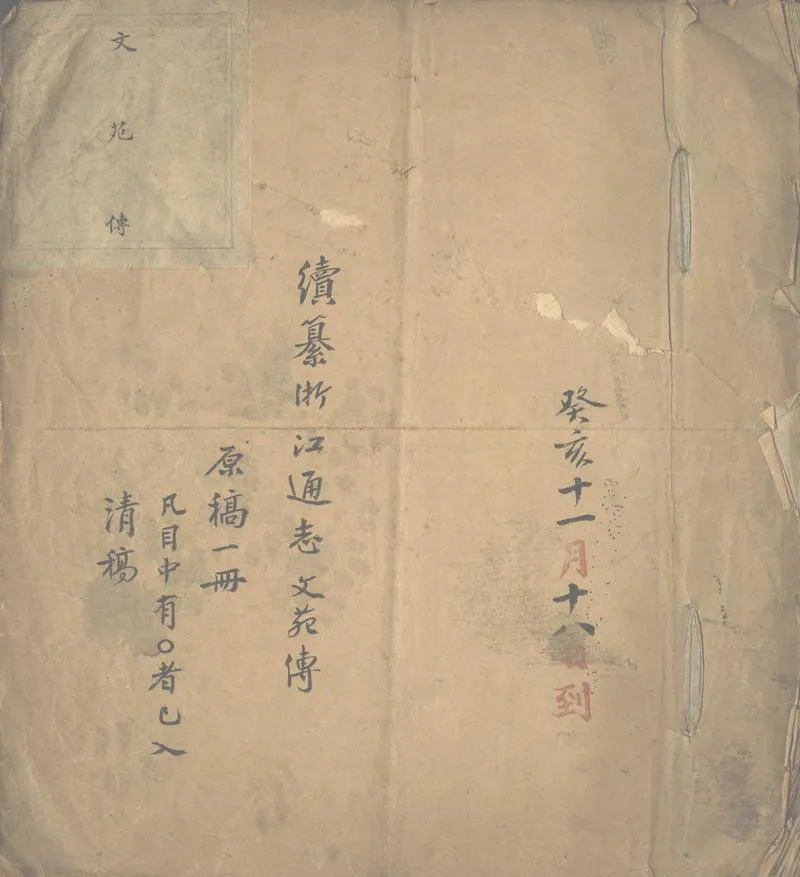 癸亥十一月十八日到
續纂浙江通志文苑傳
原稿一冊
凡目中有〇者已入
清稿
文苑傳